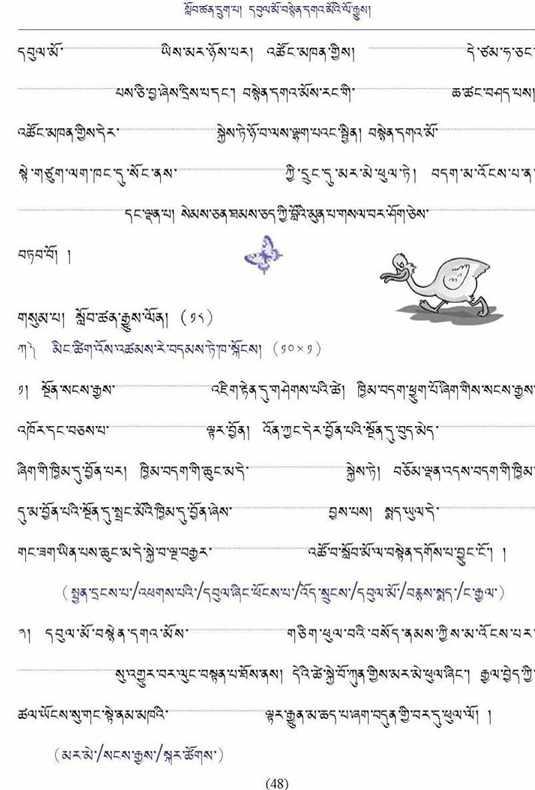 སློབ་ཚན་དྲུག་པ། དབུལ་མོ་བསྙེན་དགའ་མོའི་ལོ་རྒྱུས།
དབུལ་མོ་ ཡིས་མར་ཉོས་པར། འཚོང་མཁན་གྱིས། དེ་ཙམ་ཧ་ཅང་
པས་ཅི་བྱ་ཞེས་དྲིས་པ་དང་། བསྙེན་དགའ་མོས་རང་གི་ ཆ་ཚང་བཤད་པས།
འཚོང་མཁན་གྱིས་དེར་ སྐྱེས་ཏེ་ཉོ་བ་ལས་ལྷག་པའང་སྦྱིན། བསྙེན་དགའ་མོ་
སྟེ་གཙུག་ལག་ཁང་དུ་སོང་ནས་ ཀྱི་དྲུང་དུ་མར་མེ་ཕུལ་ཏེ། བདག་མ་འོངས་པ་ན་
དང་ལྡན་པ། སེམས་ཅན་ཐམས་ཅད་ཀྱི་བློའི་མུན་པ་གསལ་བར་ཤོག་ཅེས་
བཏབ་བོ། །
གསུམ་པ། སློབ་ཚན་རྒྱུས་ལོན། (༡༥)
ཀ༽ མིང་ཚིག་འོས་འཚམས་རེ་བདམས་ཏེ་ཁ་སྐོངས། (༡༠×༡)
༡། སྔོན་སངས་རྒྱས་ འཇིག་རྟེན་དུ་གཤེགས་པའི་ཚེ། ཁྱིམ་བདག་ཕྱུག་པོ་ཞིག་གིས་སངས་རྒྱས་
འཁོར་དང་བཅས་པ་ སྟར་བྱོན། འོན་ཀྱང་དེར་བྱོན་པའི་སྔོན་དུ་བུད་མེད་
ཞིག་གི་ཁྱིམ་དུ་བྱོན་པར། ཁྱིམ་བདག་གི་ཆུང་མ་དེ་ སྐྱེས་ཏེ། བཅོམ་ལྡན་འདས་བདག་གི་ཁྱིམ་
དུ་མ་བྱོན་པའི་སྔོན་དུ་སྤྲང་མོའི་ཁྱིམ་དུ་བྱོན་ཞེས་ བྱས་པས། སྨད་ཡུལ་དེ་
གང་ཟག་ཡིན་པས་ཆུང་མ་དེ་སྐྱེ་བ་ལྔ་བརྒྱར་ འཚོ་བ་སློབ་མོ་ལ་བསྟེན་དགོས་པ་བྱུང་ངོ༌། །
(སྤྱན་དྲངས་པ་/འཕགས་པའི་/དབུལ་ཞིང་ཕོངས་པ་/འོད་སྲུངས་/དབུལ་མོ་/བརྙས་སྨད་/ང་རྒྱལ་)
༢། དབུལ་མོ་བསྙེན་དགའ་མོས་ གཅིག་ཕུལ་བའི་བསོད་ནམས་ཀྱིས་མ་འོངས་པར་
སུ་འགྱུར་བར་ལུང་བསྟན་པ་ཐོས་ནས། དེའི་ཚེ་སྐྱེ་བོ་ཀུན་གྱིས་མར་མེ་ཕུལ་ཞིང་། རྒྱལ་བྱེད་ཀྱི་
ཚལ་ཡོངས་སུ་གང་སྟེ་ནམ་མཁའི་ ལྟར་རྒྱུན་མ་ཆད་པ་ཞག་བདུན་གྱི་བར་དུ་ཕུལ་ལོ། །
(མར་མེ་/སངས་རྒྱས་/སྐར་ཚོགས་)
(48)